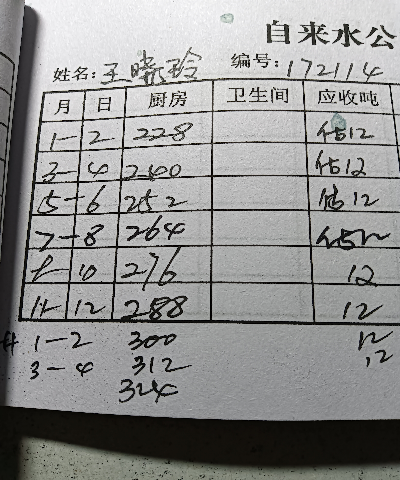 自来水公
姓名:王晓玲 编号:172114
月 日 厨房 卫生间 应收吨
1-2 228 估12
3-4 240 估12
5-6 252 估12
7-8 264 估12
10 276 12
11-12 288 12
1-2 300 12
3-4 312 12
324